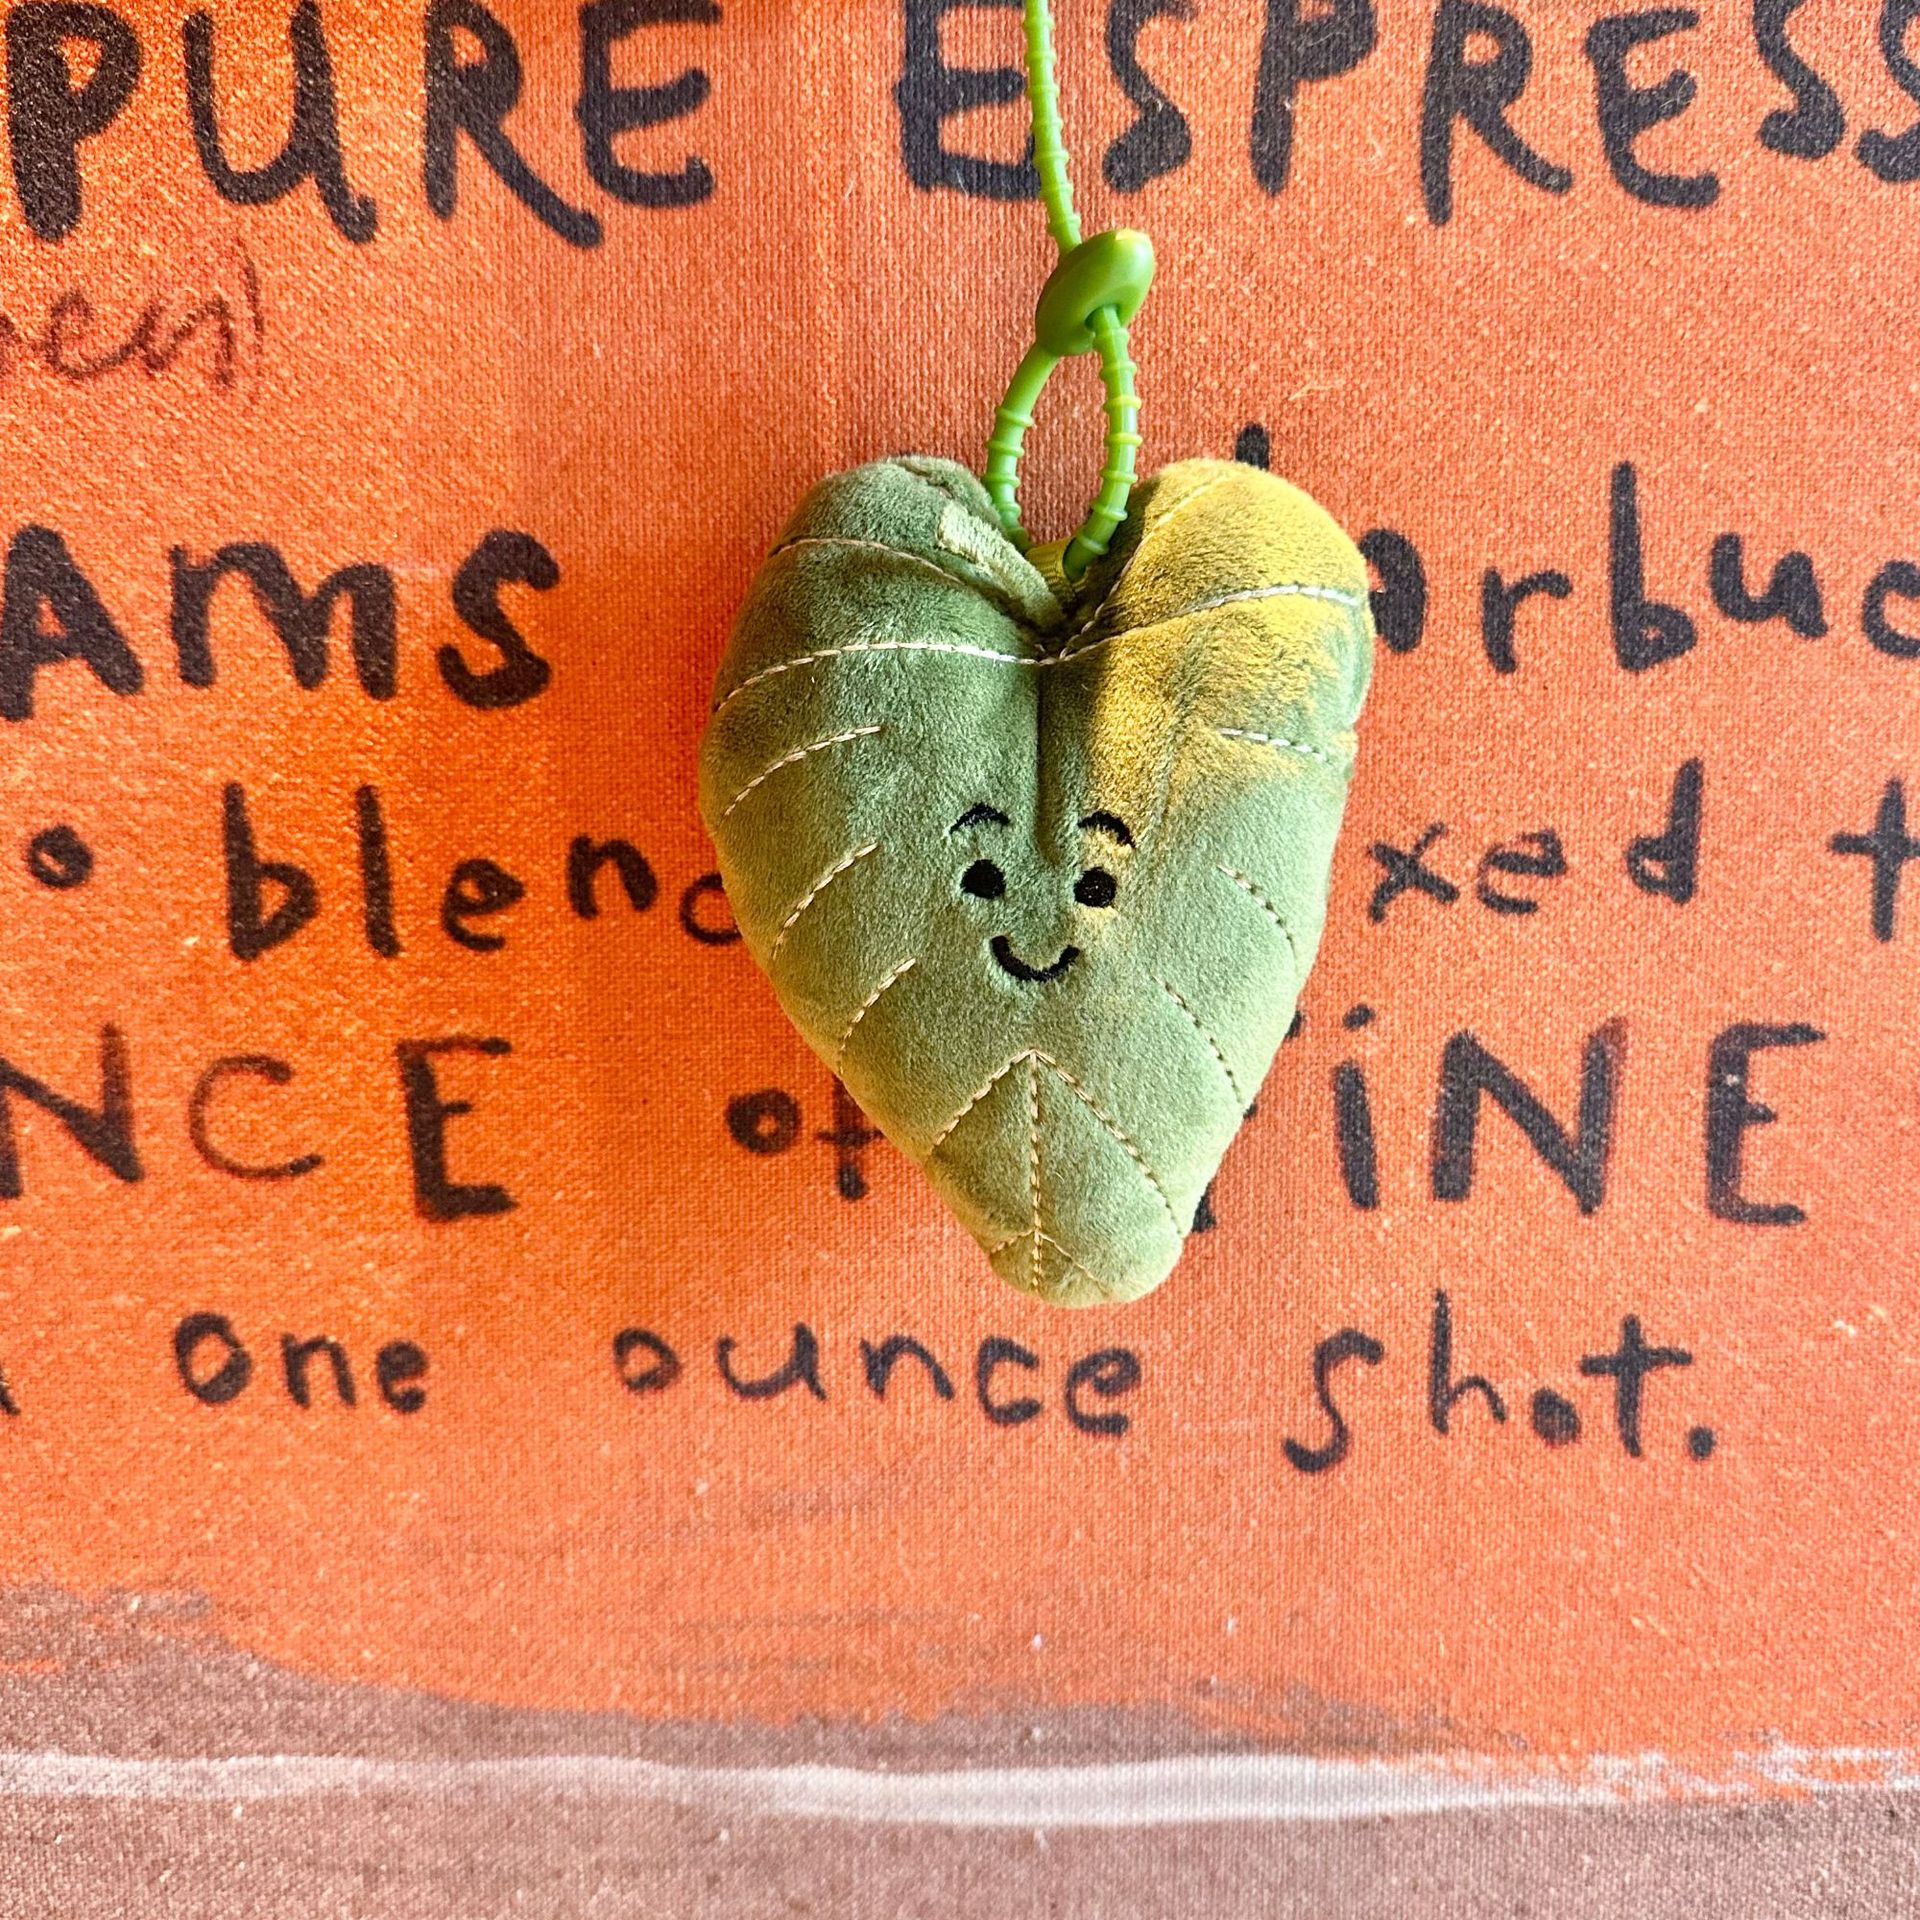 PURE ESPRESS
AMS arbuc
o blen xed t
NCE of iNE
one ounce shot.